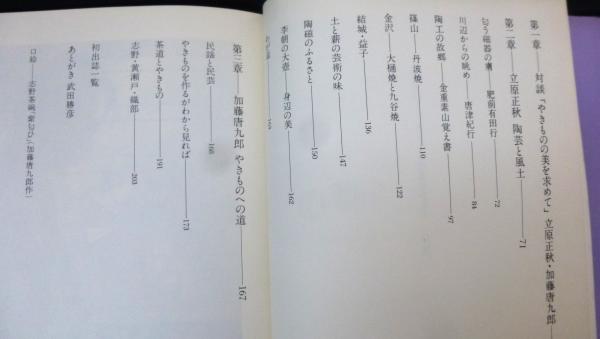 第一章――対談「やきものの美を求めて」立原正秋・加藤唐九郎――
第二章――立原正秋 陶芸と風土――71
匂う磁器の肌 肥前有田行――72
川辺からの眺め――唐津紀行――84
陶工の故郷――金重素山覚え書――97
篠山――丹波焼――110
金沢――大樋焼と九谷焼――122
結城・益子――136
土と薪の芸術の味――147
陶磁のふるさと――150
李朝の大壺――身辺の美――162
第三章――加藤唐九郎 やきものへの道――167
民謡と民芸――168
やきものを作るがわから見れば――173
茶道とやきもの――191
志野・黄瀬戸・織部――203
初出誌一覧
あとがき 武田勝彦
口絵――志野茶碗「紫匂ひ」(加藤唐九郎作)